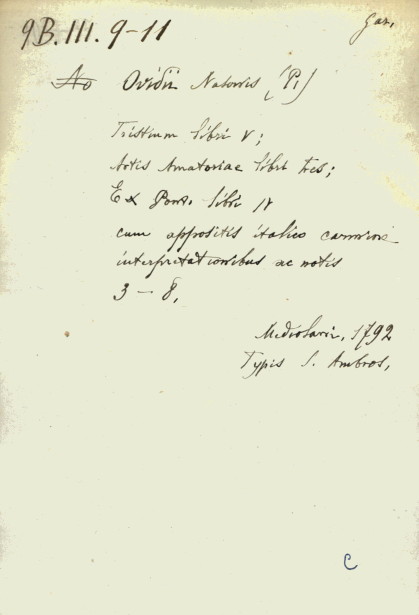 9B. III. 9-11
Gar.
Ao Ovidii Nasonis (P.)
Tristium libri V;
Artis Amatoriae libri tres;
Ex Pont. libri IV
cum appositis italico carmine
interpretationibus ac notis
3 - 8,
Mediolani, 1792
Typis S. Ambros,
C